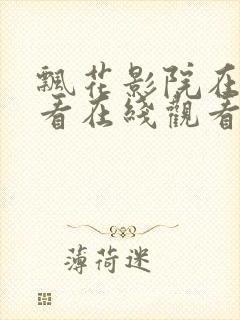 飄花影院在
看在綫觀看
薄荷迷